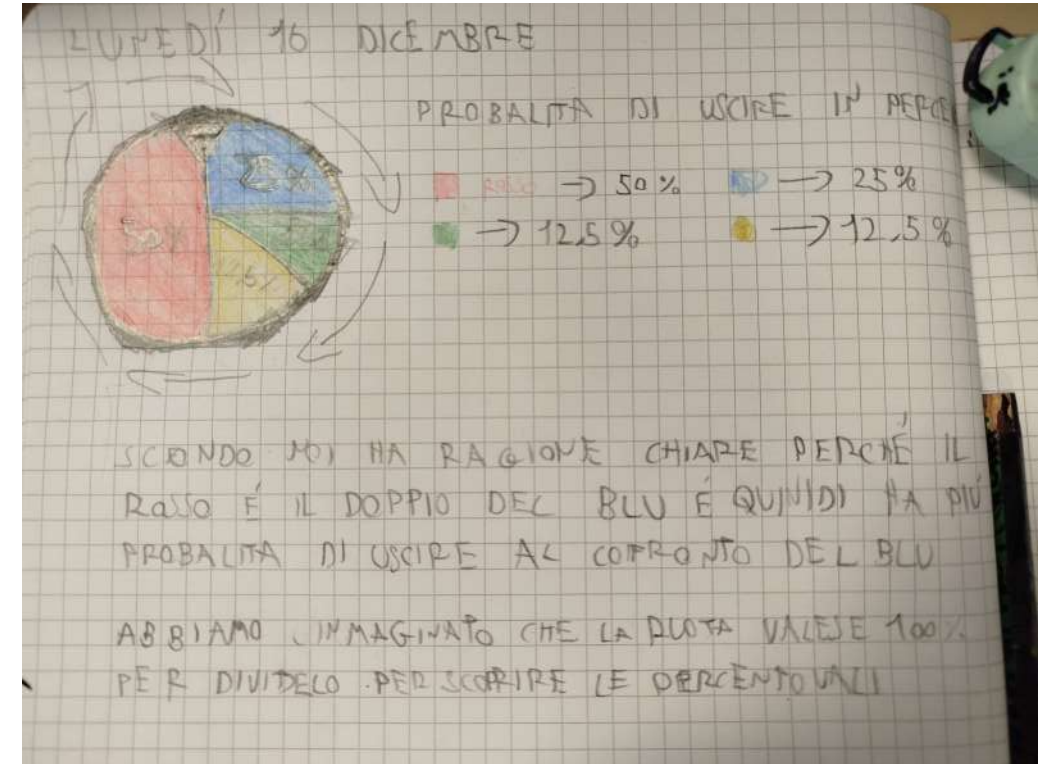 LUNEDÍ 16 DICEMBRE
PROBALITA DI USCIRE IN PERCE
ROSSO → 50 % → 25 %
→ 12,5 % → 12,5 %
25 %
50 %
12,5%
SCONDO NOI HA RAGIONE CHIARE PERCHÉ IL
ROSSO É IL DOPPIO DEL BLU É QUINIDI HA PIÚ
PROBALITA DI USCIRE AL CONFRONTO DEL BLU
ABBIAMO INMAGINATO CHE LA RUOTA VALESE 100%
PER DIVIDELO PER SCOPRIRE LE PERCENTOUALI